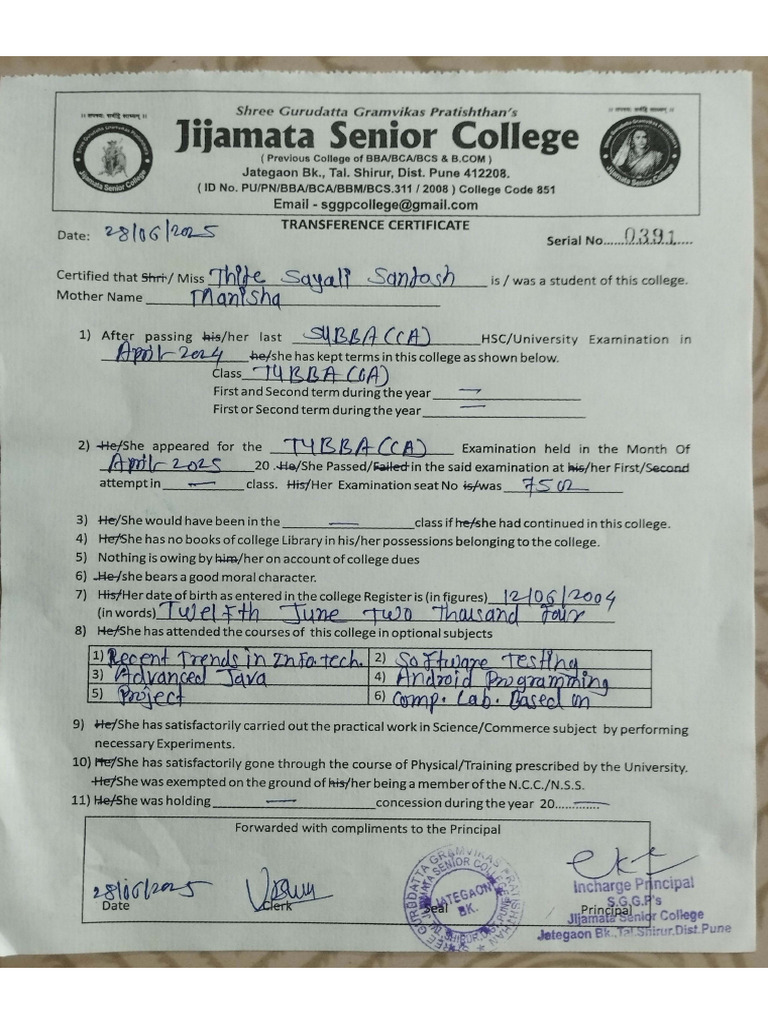 Shree Gurudatta Gramvikas Pratishthan's
Jijamata Senior College
( Previous College of BBA/BCA/BCS & B.COM )
Jategaon Bk., Tal. Shirur, Dist. Pune 412208.
( ID No. PU/PN/BBA/BCA/BBM/BCS.311 / 2008 ) College Code 851
Email - sggpcollege@gmail.com
TRANSFERENCE CERTIFICATE
Date: 28/06/2025
Serial No.....0391....
Certified that Shri / Miss Thite Sayali Santosh is / was a student of this college.
Mother Name Manisha
1) After passing his/her last SYBBA(CA) HSC/University Examination in
April-2024 he/she has kept terms in this college as shown below.
Class TYBBA(CA)
First and Second term during the year —
First or Second term during the year —
2) He/She appeared for the TYBBA(CA) Examination held in the Month Of
April-2025 20 .He/She Passed/Failed in the said examination at his/her First/Second
attempt in — class. His/Her Examination seat No is/was 7502
3) He/She would have been in the — class if he/she had continued in this college.
4) He/She has no books of college Library in his/her possessions belonging to the college.
5) Nothing is owing by him/her on account of college dues
6) He/she bears a good moral character.
7) His/Her date of birth as entered in the college Register is (in figures) 12/06/2004
(in words) Twelfth June Two Thausand Four
8) He/She has attended the courses of this college in optional subjects
1) Recent Trends in Info.tech. 2) Software Testing
3) Advanced Java 4) Android Programming
5) Project 6) Comp. Lab. Based on
9) He/She has satisfactorily carried out the practical work in Science/Commerce subject by performing
necessary Experiments.
10) He/She has satisfactorily gone through the course of Physical/Training prescribed by the University.
He/She was exempted on the ground of his/her being a member of the N.C.C./N.S.S.
11) He/She was holding — concession during the year 20.............
Forwarded with compliments to the Principal
28/06/2025
Date
Clerk
Seal
Principal
JATEGAON
BK.
Incharge Principal
S.G.G.P's
Jijamata Senior College
Jategaon Bk., Tal.Shirur, Dist.Pune